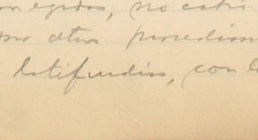 negros, no esta
otro procedim
latifundios, con l